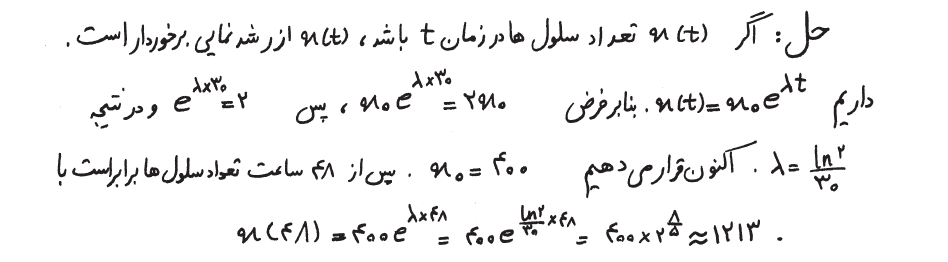 حل: اگر x(t) تعداد سلول ها در زمان t باشد، x(t) از رشد نمایی برخوردار است.
داریم x(t)=x₀e^{λt}. بنابر فرض x₀e^{λ×۳۰}=۲x₀، پس e^{λ×۳۰}=۲ و در نتیجه
λ=ln۲/۳۰. اکنون قرار می دهیم x₀=۴۰۰. پس از ۴۸ ساعت تعداد سلول ها برابر است با
x(۴۸)=۴۰۰e^{λ×۴۸}=۴۰۰e^{ln۲/۳۰×۴۸}=۴۰۰×۲^{۸/۵}≈۱۲۱۳.